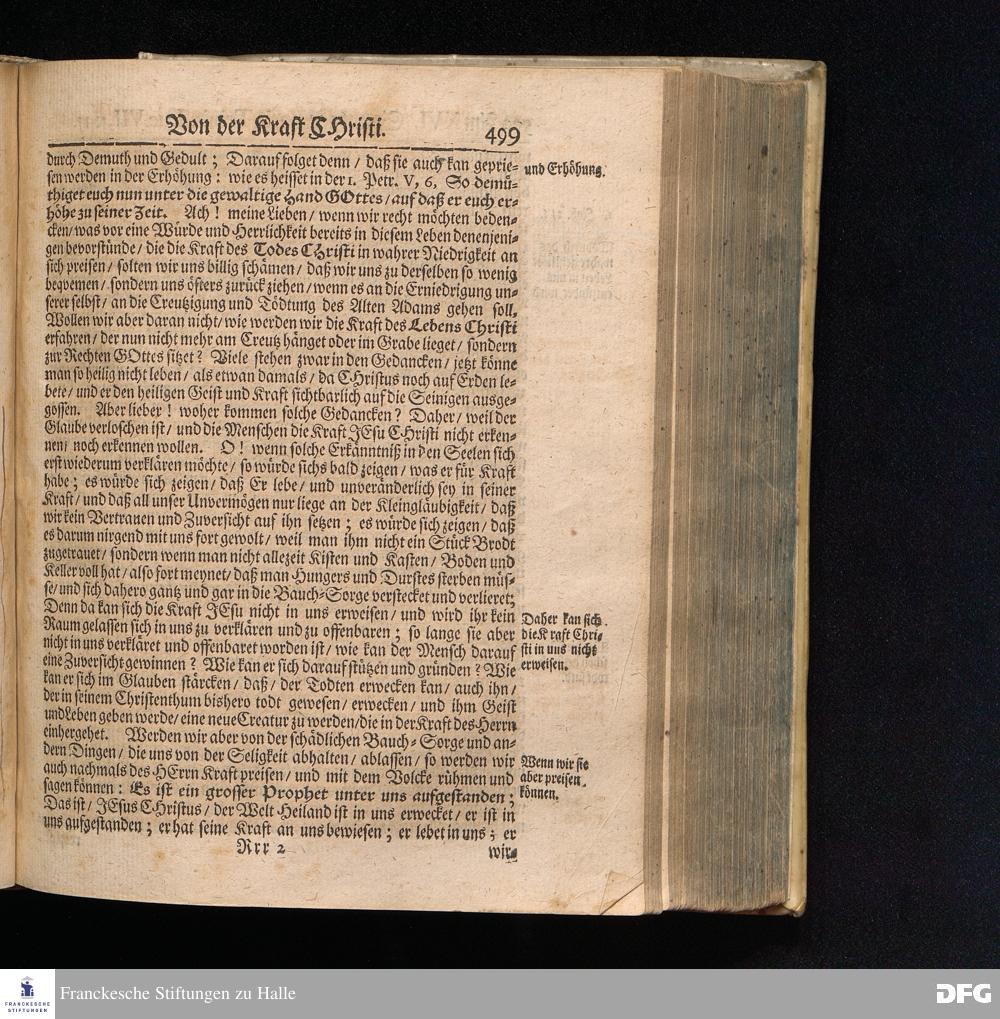 Von der Kraft CHristi.
499
durch Demuth und Gedult ; Darauf folget denn / daß sie auch kan geprie-
sen werden in der Erhöhung : wie es heisset in der 1. Petr. V, 6, So demü-
thiget euch nun unter die gewaltige Hand GOttes / auf daß er euch er-
höhe zu seiner Zeit. Ach ! meine Lieben / wenn wir recht möchten beden-
cken / was vor eine Würde und Herrlichkeit bereits in diesem Leben denenjeni-
gen bevorstünde / die die Kraft des Todes CHristi in wahrer Niedrigkeit an
sich preisen / solten wir uns billig schämen / daß wir uns zu derselben so wenig
beqvemen / sondern uns öfters zurück ziehen / wenn es an die Erniedrigung un-
serer selbst / an die Creutzigung und Tödtung des Alten Adams gehen soll.
Wollen wir aber daran nicht / wie werden wir die Kraft des Lebens Christi
erfahren / der nun nicht mehr am Creutz hänget oder im Grabe lieget / sondern
zur Rechten GOttes sitzet ? Viele stehen zwar in den Gedancken / jetzt könne
man so heilig nicht leben / als etwan damals / da CHristus noch auf Erden le-
bete / und er den heiligen Geist und Kraft sichtbarlich auf die Seinigen ausge-
gossen. Aber lieber ! woher kommen solche Gedancken ? Daher / weil der
Glaube verloschen ist / und die Menschen die Kraft JEsu CHristi nicht erken-
nen / noch erkennen wollen. O ! wenn solche Erkänntniß in den Seelen sich
erst wiederum verklären möchte / so würde sichs bald zeigen / was er für Kraft
habe ; es würde sich zeigen / daß Er lebe / und unveränderlich sey in seiner
Kraft / und daß all unser Unvermögen nur liege an der Kleingläubigkeit / daß
wir kein Vertrauen und Zuversicht auf ihn setzen ; es würde sich zeigen / daß
es darum nirgend mit uns fort gewolt / weil man ihm nicht ein Stück Brodt
zugetrauet / sondern wenn man nicht allezeit Kisten und Kasten / Boden und
Keller voll hat / also fort meynet / daß man Hungers und Durstes sterben müs-
se / und sich dahero gantz und gar in die Bauch-Sorge verstecket und verlieret;
Denn da kan sich die Kraft JEsu nicht in uns erweisen / und wird ihr kein
Raum gelassen sich in uns zu verklären und zu offenbaren ; so lange sie aber
nicht in uns verkläret und offenbaret worden ist / wie kan der Mensch darauf
eine Zuversicht gewinnen ? Wie kan er sich darauf stützen und gründen ? Wie
kan er sich im Glauben stärcken / daß / der Todten erwecken kan / auch ihn /
der in seinem Christenthum bishero todt gewesen / erwecken / und ihm Geist
und Leben geben werde / eine neue Creatur zu werden / die in der Kraft des Herrn
einhergehet. Werden wir aber von der schädlichen Bauch-Sorge und an-
dern Dingen / die uns von der Seligkeit abhalten / ablassen / so werden wir
auch nachmals des HErrn Kraft preisen / und mit dem Volcke rühmen und
sagen können : Es ist ein grosser Prophet unter uns aufgestanden ;
Das ist / JEsus CHristus / der Welt Heiland ist in uns erwecket / er ist in
uns aufgestanden ; er hat seine Kraft an uns bewiesen ; er lebet in uns ; er
Rrr 2
wir-
und Erhöhung.
Daher kan sich
die Kraft Chri-
sti in uns nicht
erweisen.
Wenn wir sie
aber preisen
können.
FRANCKESCHE
STIFTUNGEN
Franckesche Stiftungen zu Halle
DFG